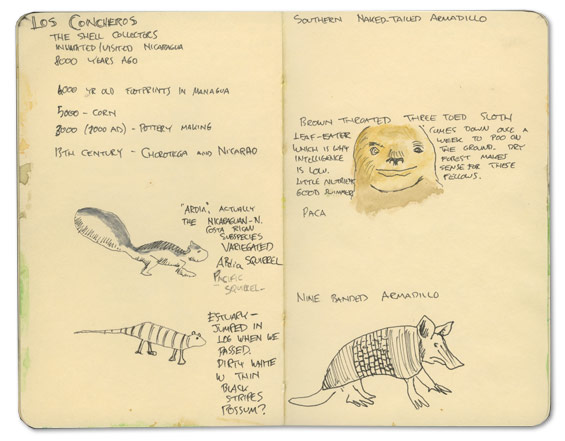 Los Concheros
The Shell Collectors
Inhabited/Visited Nicaragua
8000 Years Ago
6000 Yr Old Footprints in Managua
5000 - Corn
3000 (2000 AD) - Pottery Making
13th Century - Chorotega and Nicarao
"Ardia", Actually
the Nicaraguan-N.
Costa Rican
Subspecies
Variegated
Ardia Squirrel
Pacific
Squirrel
Estuary -
Jumped in
Log When We
Passed.
Dirty White
w Thin
Black
Stripes
Possum?
Southern Naked-Tailed Armadillo
Brown Throated Three Toed Sloth
Leaf-Eater
Which is Why
Intelligence
is Low.
Little Nutrients
Good Swimmers
Comes Down Once a
Week to Poo on
the Ground. Dry
Forest Makes
Sense for These
Fellows.
Paca
Nine Banded Armadillo